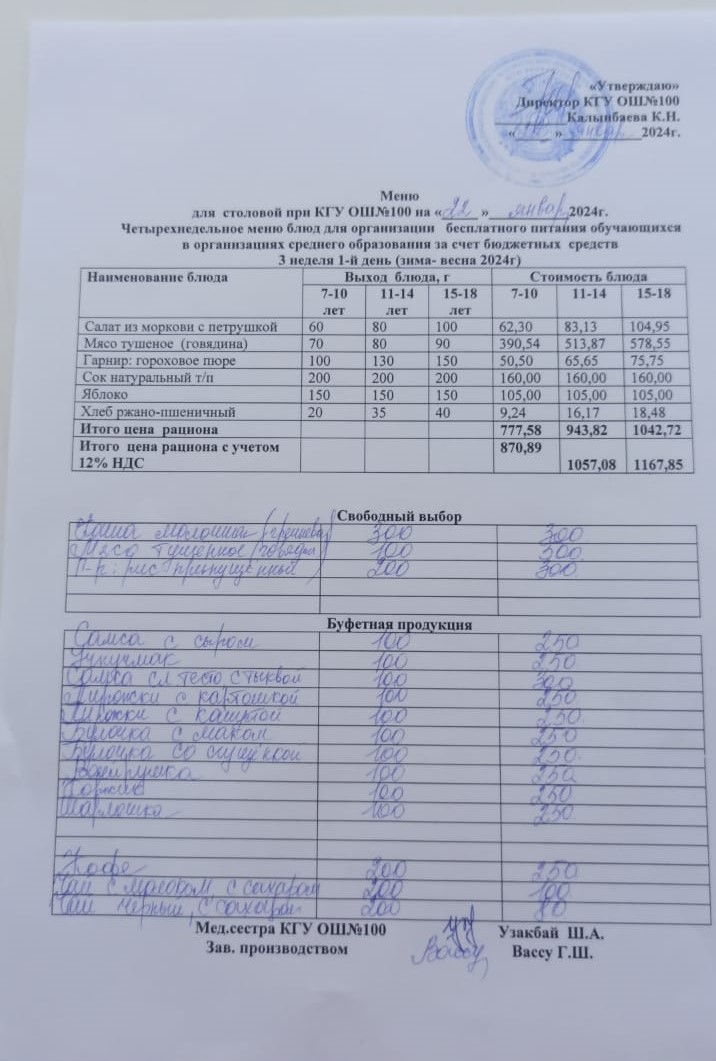 «Утверждаю»
Директор КГУ ОШ№100
Калынбаева К.Н.
« » 2024г.
Меню
для столовой при КГУ ОШ№100 на «22 » январ 2024г.
Четырехнедельное меню блюд для организации бесплатного питания обучающихся
в организациях среднего образования за счет бюджетных средств
3 неделя 1-й день (зима- весна 2024г)
Наименование блюда Выход блюда, г Стоимость блюда
7-10 лет 11-14 лет 15-18 лет 7-10 11-14 15-18
Салат из моркови с петрушкой 60 80 100 62,30 83,13 104,95
Мясо тушеное (говядина) 70 80 90 390,54 513,87 578,55
Гарнир: гороховое пюре 100 130 150 50,50 65,65 75,75
Сок натуральный т/п 200 200 200 160,00 160,00 160,00
Яблоко 150 150 150 105,00 105,00 105,00
Хлеб ржано-пшеничный 20 35 40 9,24 16,17 18,48
Итого цена рациона 777,58 943,82 1042,72
Итого цена рациона с учетом 870,89
12% НДС 1057,08 1167,85
Свободный выбор
молочный 300 300
Мясо тушенное 100 500
Г-р: рис припущенный 200 300
Буфетная продукция
Самса с сыром 100 250
Учпучмак 100 250
Самса сл тесто с тыквой 100 300
Пирожки с картошкой 100 250
Пирожки с капустой 100 250
Булочка с маком 100 250
Булочка со сгущёнкой 100 250
Ватрушка 100 250
Коржик 100 250
Шарлотка 100 250
Кофе 200 250
Чай с молоком, с сахаром 200 100
Чай черный, с сахаром 200 80
Мед.сестра КГУ ОШ№100 Узакбай Ш.А.
Зав. производством Вассу Вассу Г.Ш.